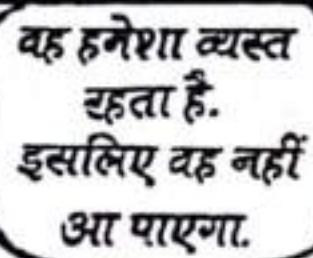 वह हमेशा व्यस्त
रहता है.
इसलिए वह नहीं
आ पाएगा.